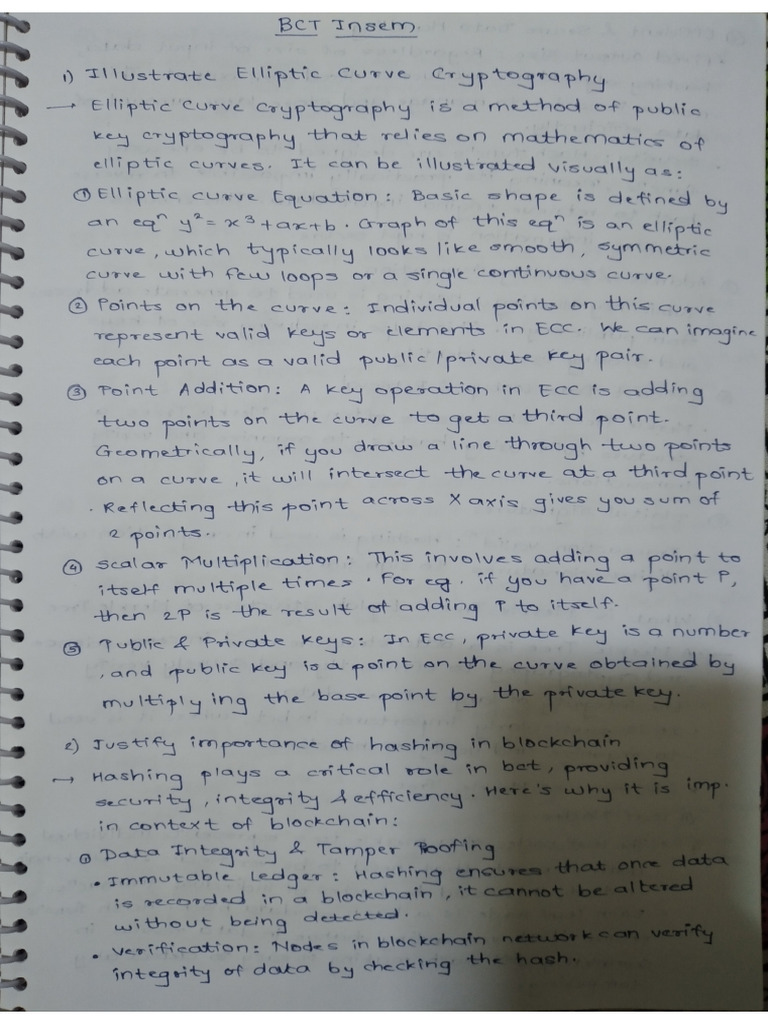 BCT Insem
1) Illustrate Elliptic Curve Cryptography
→ Elliptic Curve Cryptography is a method of public
key cryptography that relies on mathematics of
elliptic curves. It can be illustrated visually as:
① Elliptic curve Equation: Basic shape is defined by
an eqⁿ y² = x³+ax+b. Graph of this eqⁿ is an elliptic
curve, which typically looks like smooth, symmetric
curve with few loops or a single continuous curve.
② Points on the curve: Individual points on this curve
represent valid keys or elements in ECC. We can imagine
each point as a valid public/private key pair.
③ Point Addition: A key operation in ECC is adding
two points on the curve to get a third point.
Geometrically, if you draw a line through two points
on a curve, it will intersect the curve at a third point
. Reflecting this point across X axis gives you sum of
2 points.
④ Scalar Multiplication: This involves adding a point to
itself multiple times. For eg. if you have a point P,
then 2P is the result of adding P to itself.
⑤ Public & Private Keys: In ECC, private key is a number
, and public key is a point on the curve obtained by
multiplying the base point by the private key.
2) Justify importance of hashing in blockchain
→ Hashing plays a critical role in bct, providing
security, integrity & efficiency. Here's why it is imp.
in context of blockchain:
① Data Integrity & Tamper Roofing
• Immutable Ledger: Hashing ensures that once data
is recorded in a blockchain, it cannot be altered
without being detected.
• Verification: Nodes in blockchain network can verify
integrity of data by checking the hash.